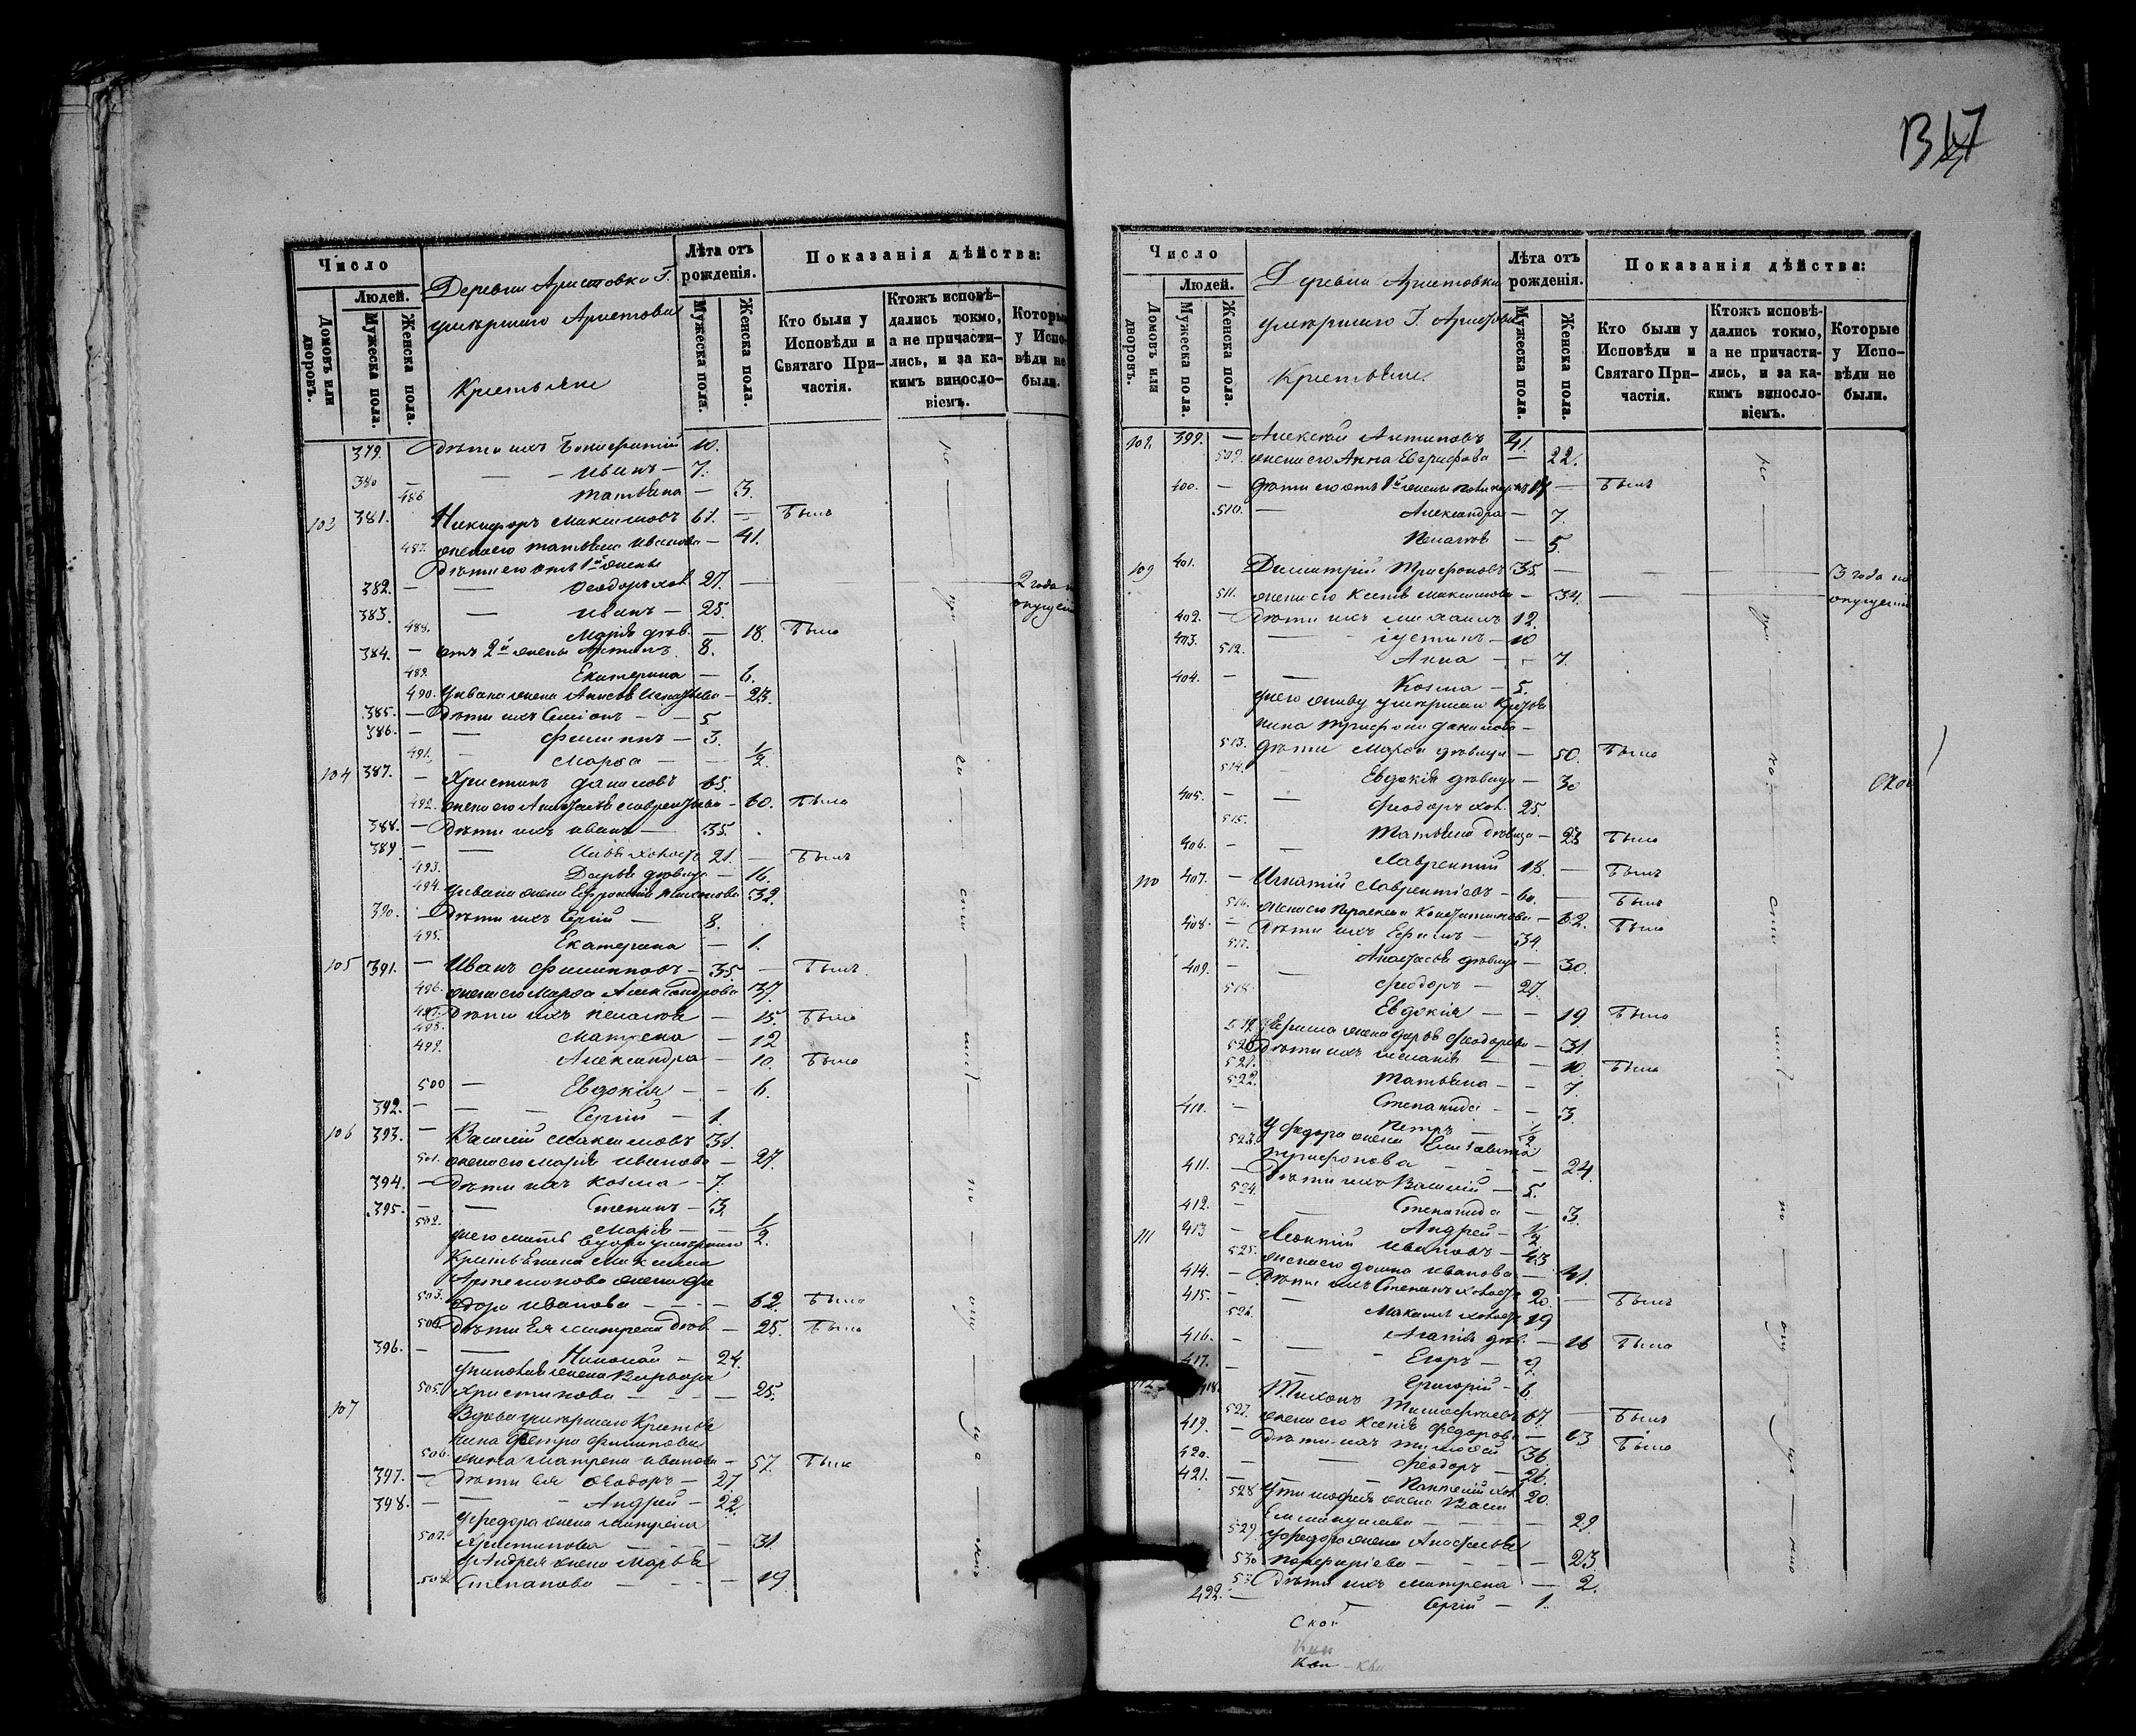 1317
Число
Людей.
Домовъ или дворовъ.
Мужеска пола.
Женска пола.
Деревни Аристовки Г.
умершаго Аристова
Крестьяне
Лѣта отъ рожденія.
Мужеска пола.
Женска пола.
Показанія дѣйства:
Кто были у Исповѣди и Святаго Причастія.
Ктожъ исповѣдались токмо, а не причастились, и за какимъ винословіемъ.
Которые у Исповѣди не были.
379. Дѣти ихъ Бонифатій 10.
380 — Иванъ — 7.
486 Татьяна — 3.
103 381. Никифоръ Максимовъ 61. — Былъ
487. жена его Татьяна Иванова — 41.
Дѣти его отъ 1й жены
382. — Феодоръ хол. 27. — 2 года по
383. — Иванъ — 25. опущен
488. Марія дѣв. — 18. Была
384. — отъ 2й жены Антипъ 8.
489. Екатерина — 6.
490. У Ивана жена Анисья Игнатьева — 23.
385. — Дѣти ихъ Симеонъ — 5.
386. — Филиппъ — 3.
491. Марфа — 1/2.
104 387. — Христинъ Даниловъ 65.
492. жена его Анастасія Лаврентьева — 60. Была
388. — Дѣти ихъ Иванъ — 35.
389. — холостъ 21. — Былъ
493. Дарья дѣвица — 16.
494. У Ивана жена Евфросинія 32.
390. — Дѣти ихъ Сергій — 8.
495. Екатерина — 1.
105 391. — Иванъ Филипповъ — 35. — Былъ
496. жена его Марфа Александрова 37.
497. Дѣти ихъ Пелагія — 15. Была
498. Матрена — 12
499. Александра — 10. Была
500 — Евдокія — 6.
392. — Сергій — 1.
106 393. — Василій Максимовъ 31.
501. жена его Марія Иванова — 27.
394. — Дѣти ихъ Косма — 7.
395. — Степанъ — 3.
502. Марія — 1/2.
у него мать вдова умершаго
Крестьянина Максима
Артемонова жена Фе
503. одора Иванова — 62. Была
504. Дѣти Ея Матрена дѣв. — 25. Была
396. — Николай — 24.
у Николая жена Варвара
505. Христинова — 25.
107 Вдова умершаго Крестья
нина Петра Филипова
506. жена Матрена Иванова — 57. Была
397. — Дѣти Ея Феодоръ — 27.
398. — Андрей — 22.
У Федора жена Матрена
507. Христинова — 31.
У Андрея жена Марья
508. Степанова — 19.
Число
Людей.
Домовъ или дворовъ.
Мужеска пола.
Женска пола.
Деревни Аристовки
умершаго Г. Аристова
Крестьяне.
Лѣта отъ рожденія.
Мужеска пола.
Женска пола.
Показанія дѣйства:
Кто были у Исповѣди и Святаго Причастія.
Ктожъ исповѣдались токмо, а не причастились, и за какимъ винословіемъ.
Которые у Исповѣди не были.
108. 399. — Алексѣй Антиповъ 41.
509. жена его Анна Евграфова — 22.
400. — Дѣти его отъ 1й жены Поликарпъ 17 — Былъ
510. — Александра — 7.
Пелагія — 5.
109 401. Димитрій Трифоновъ 35. — 3 года по
511. жена его Ксенія Максимова — 34. — опущенію
402. — Дѣти ихъ Михаилъ 12.
403. — Іустинъ — 10
512. Анна — 7.
404. — Косма — 5.
у него живу умершаго Крестья
нина Трифона Данилова —
513. Дѣти Марфа дѣвица — 50. Была
514. Евдокія дѣвица — 30
405. — Феодоръ хол. 25.
515. Татьяна дѣвица — 23 Была
406. — Лаврентій 18. — Былъ
110 407. — Игнатій Лаврентіевъ — 60. — Былъ
516. жена его Параскева Константинова — 62. Была
408. — Дѣти ихъ Ефимъ — 34.
517. Анастасія дѣвица — 30.
409. — Феодоръ — 27.
518. Евдокія — 19. Была
519. У Ефима жена Дарья Феодорова — 31
520. Дѣти ихъ Меланія — 10. Была
521. Татьяна — 7.
522. Степанида — 3.
410. — Петръ — 1/2
523. У Федора жена Елизавета
Трифонова — 24.
411. — Дѣти ихъ Василій — 5.
524. Степанида — 3.
412. — Андрей — 1/2
111 413 — Леонтій Ивановъ — 43
525. жена его Домна Иванова — 41.
414. — Дѣти ихъ Степанъ холостъ 20. — Былъ
415. — Максимъ холостъ 19
526. Агапія дѣв. — 16 Была
416. — Егоръ — 9.
417. — Григорій — 6.
418. Тихонъ Тимофѣевъ 67. — Былъ
527. жена его Ксенія Федорова — 63 Была
419. — Дѣти ихъ Тимофей 36.
420. — Феодоръ — 26.
421. — хол. 20.
528 У Тимофея жена Васи
— 29
529 У Федора жена Анастасія
530 Порфиріева — 23
Дѣти ихъ Матрена — 2.
422. — Сергій — 1.
Ской
Кви